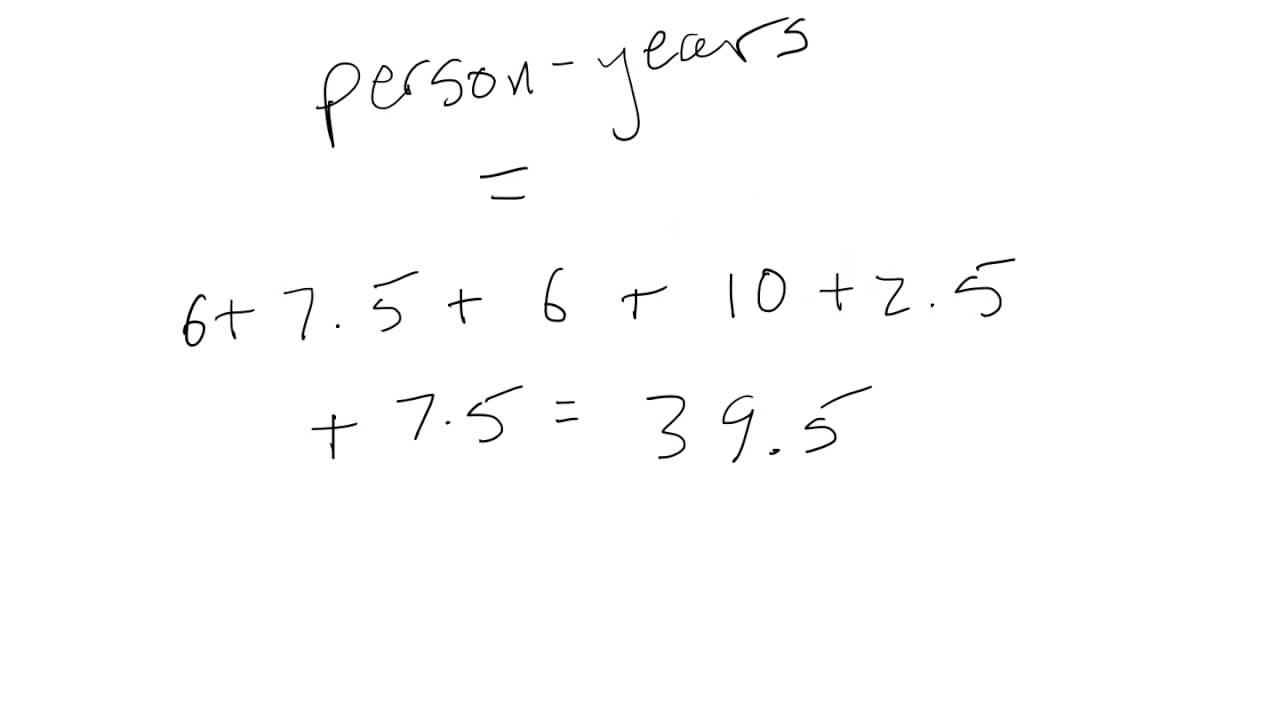 person-years
=
6+7.5+6+10+2.5
+7.5=39.5